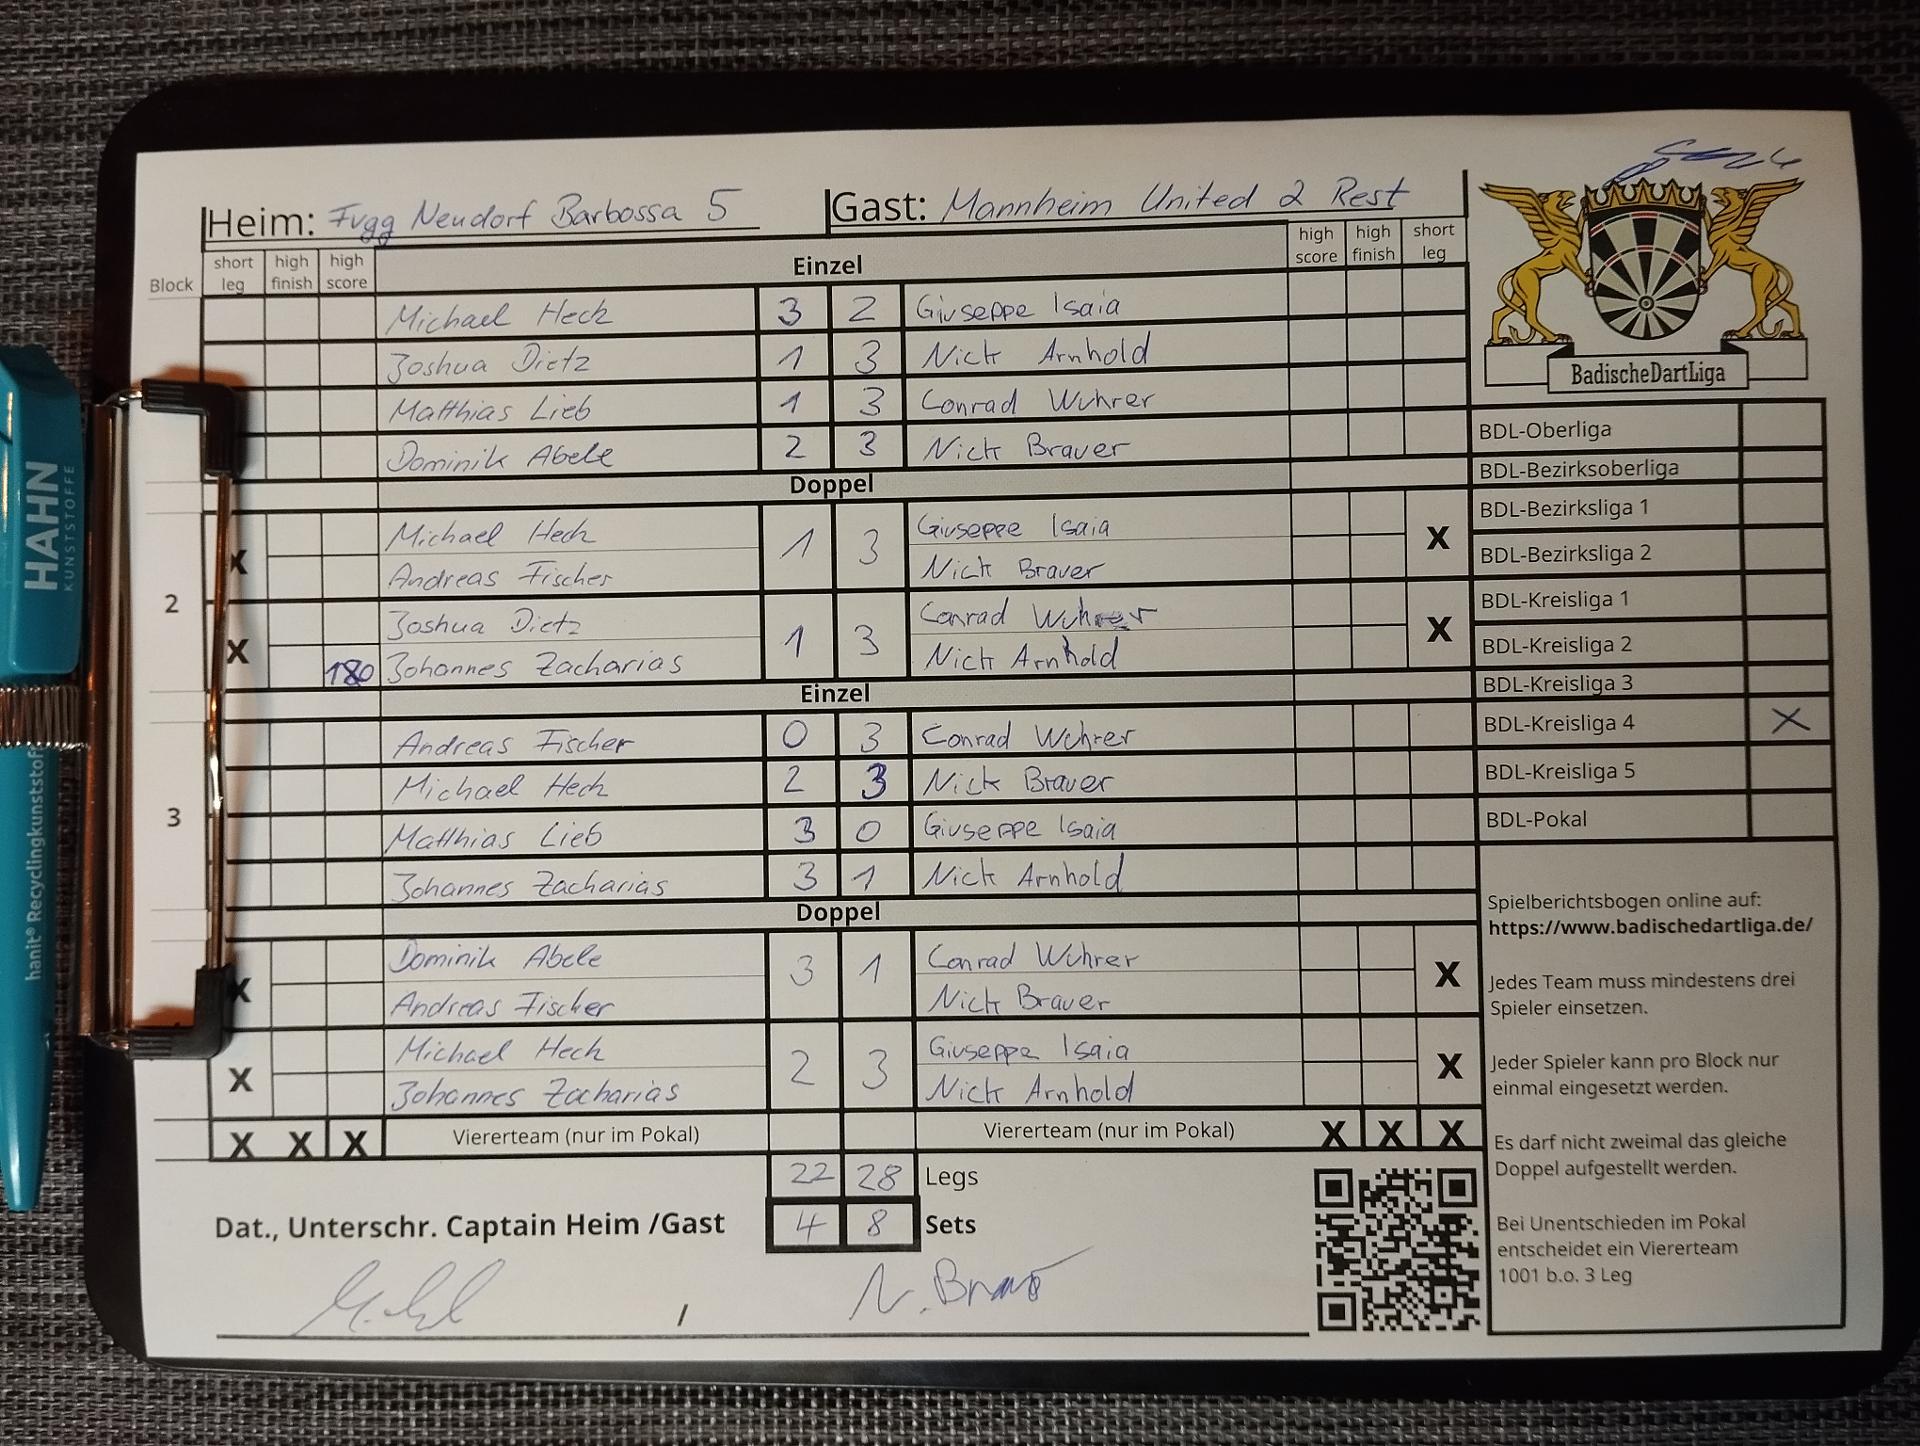 Heim: Fvgg Neudorf Barbossa 5 Gast: Mannheim United 2 Rest
Block short leg high finish high score Einzel high score high finish short leg
Michael Heck 3 2 Giuseppe Isaia
Joshua Dietz 1 3 Nick Arnhold
Matthias Lieb 1 3 Conrad Wuhrer
Dominik Abele 2 3 Nick Brauer
Doppel
Michael Heck 1 3 Giuseppe Isaia
X Andreas Fischer Nick Brauer X
2
Joshua Dietz 1 3 Conrad Wuhrer
X 180 Johannes Zacharias Nick Arnhold X
Einzel
Andreas Fischer 0 3 Conrad Wuhrer
Michael Heck 2 3 Nick Brauer
3 Matthias Lieb 3 0 Giuseppe Isaia
Johannes Zacharias 3 1 Nick Arnhold
Doppel
Dominik Abele 3 1 Conrad Wuhrer
X Andreas Fischer Nick Brauer X
Michael Heck 2 3 Giuseppe Isaia
X Johannes Zacharias Nick Arnhold X
X X X Viererteam (nur im Pokal) Viererteam (nur im Pokal) X X X
22 28 Legs
Dat., Unterschr. Captain Heim /Gast 4 8 Sets
/ N. Brauer
BadischeDartLiga
BDL-Oberliga
BDL-Bezirksoberliga
BDL-Bezirksliga 1
BDL-Bezirksliga 2
BDL-Kreisliga 1
BDL-Kreisliga 2
BDL-Kreisliga 3
BDL-Kreisliga 4 X
BDL-Kreisliga 5
BDL-Pokal
Spielberichtsbogen online auf:
https://www.badischedartliga.de/
Jedes Team muss mindestens drei
Spieler einsetzen.
Jeder Spieler kann pro Block nur
einmal eingesetzt werden.
Es darf nicht zweimal das gleiche
Doppel aufgestellt werden.
Bei Unentschieden im Pokal
entscheidet ein Viererteam
1001 b.o. 3 Leg
HAHN
KUNSTSTOFFE
hanit® Recyclingkunststoff